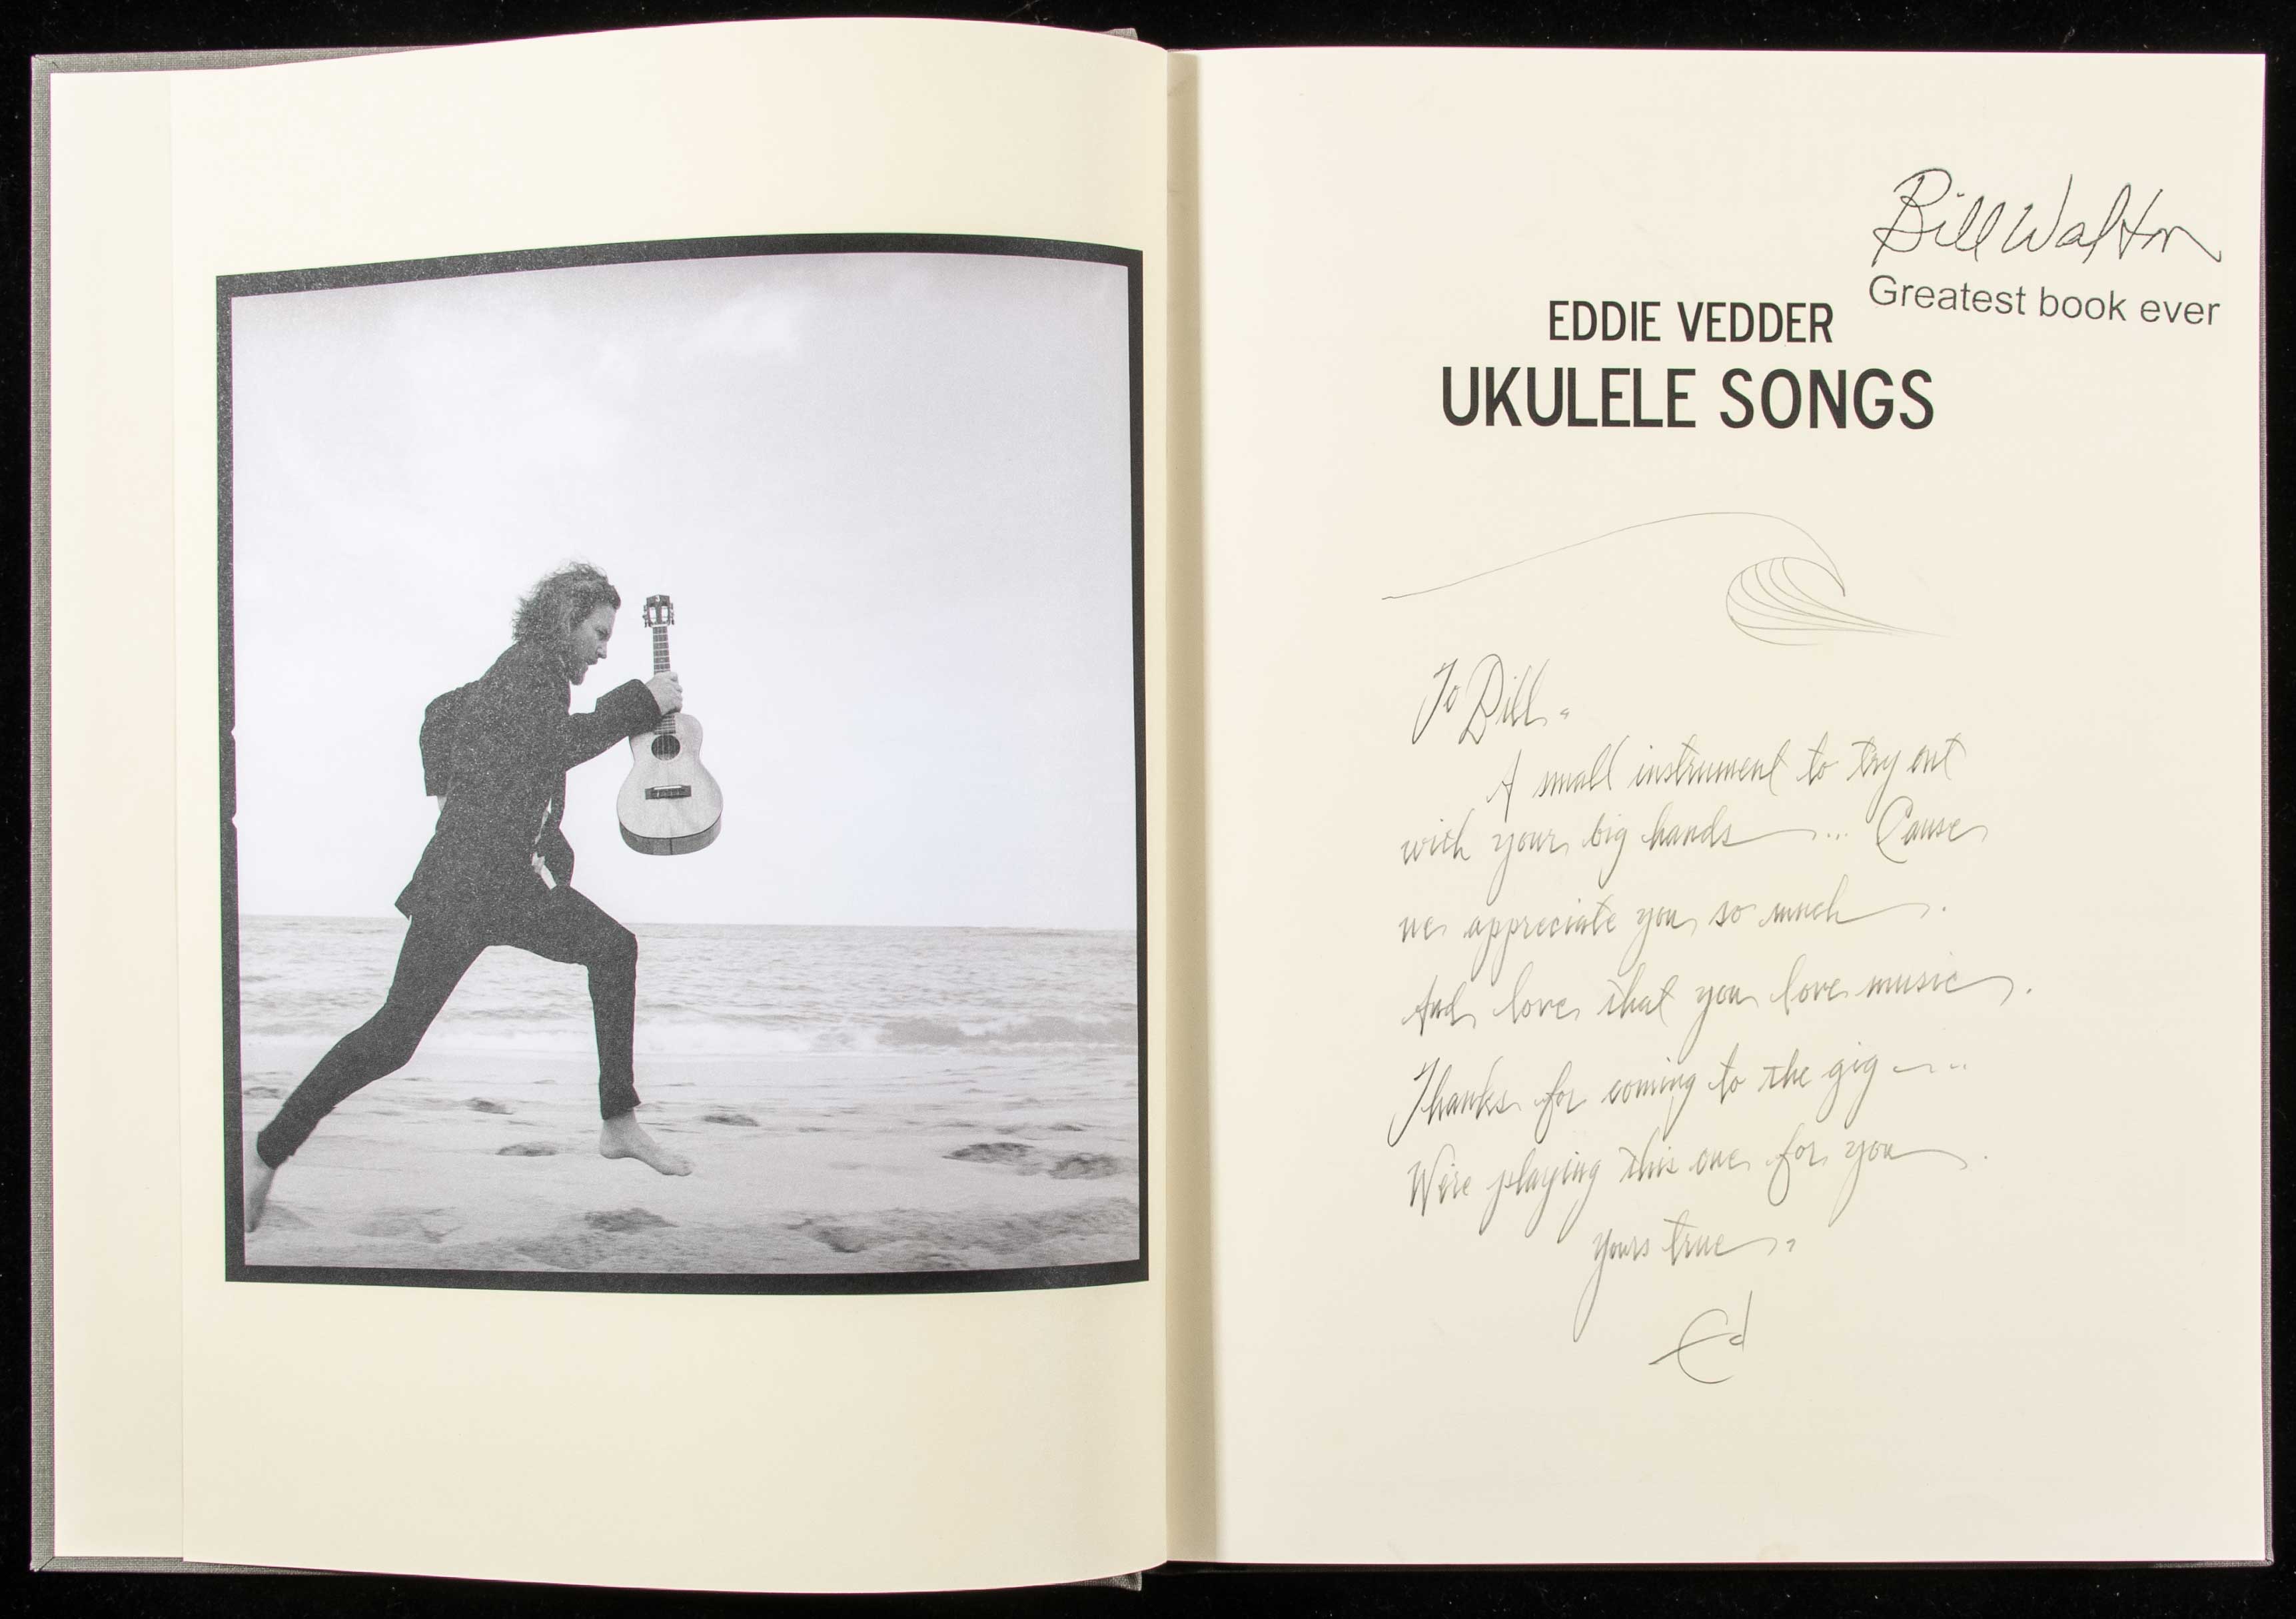 Bill Walton
Greatest book ever
EDDIE VEDDER
UKULELE SONGS
To Bill -
A small instrument to try out
with your big hands ... Cause
we appreciate you so much.
And love that you love music.
Thanks for coming to the gig - ..
We're playing this one for you.
Yours true,
Ed